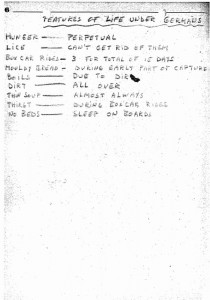 FEATURES OF LIFE UNDER GERMANS
HUNGER — PERPETUAL
LICE — CAN'T GET RID OF THEM
BOXCAR RIDES - 3 FOR TOTAL OF 15 DAYS
MOULDY BREAD - DURING EARLY PART OF CAPTURE
BOILS — DUE TO DIRT
DIRT — ALL OVER
THIN SOUP — ALMOST ALWAYS
THIRST — DURING BOXCAR RIDES
NO BEDS — SLEEP ON BOARDS